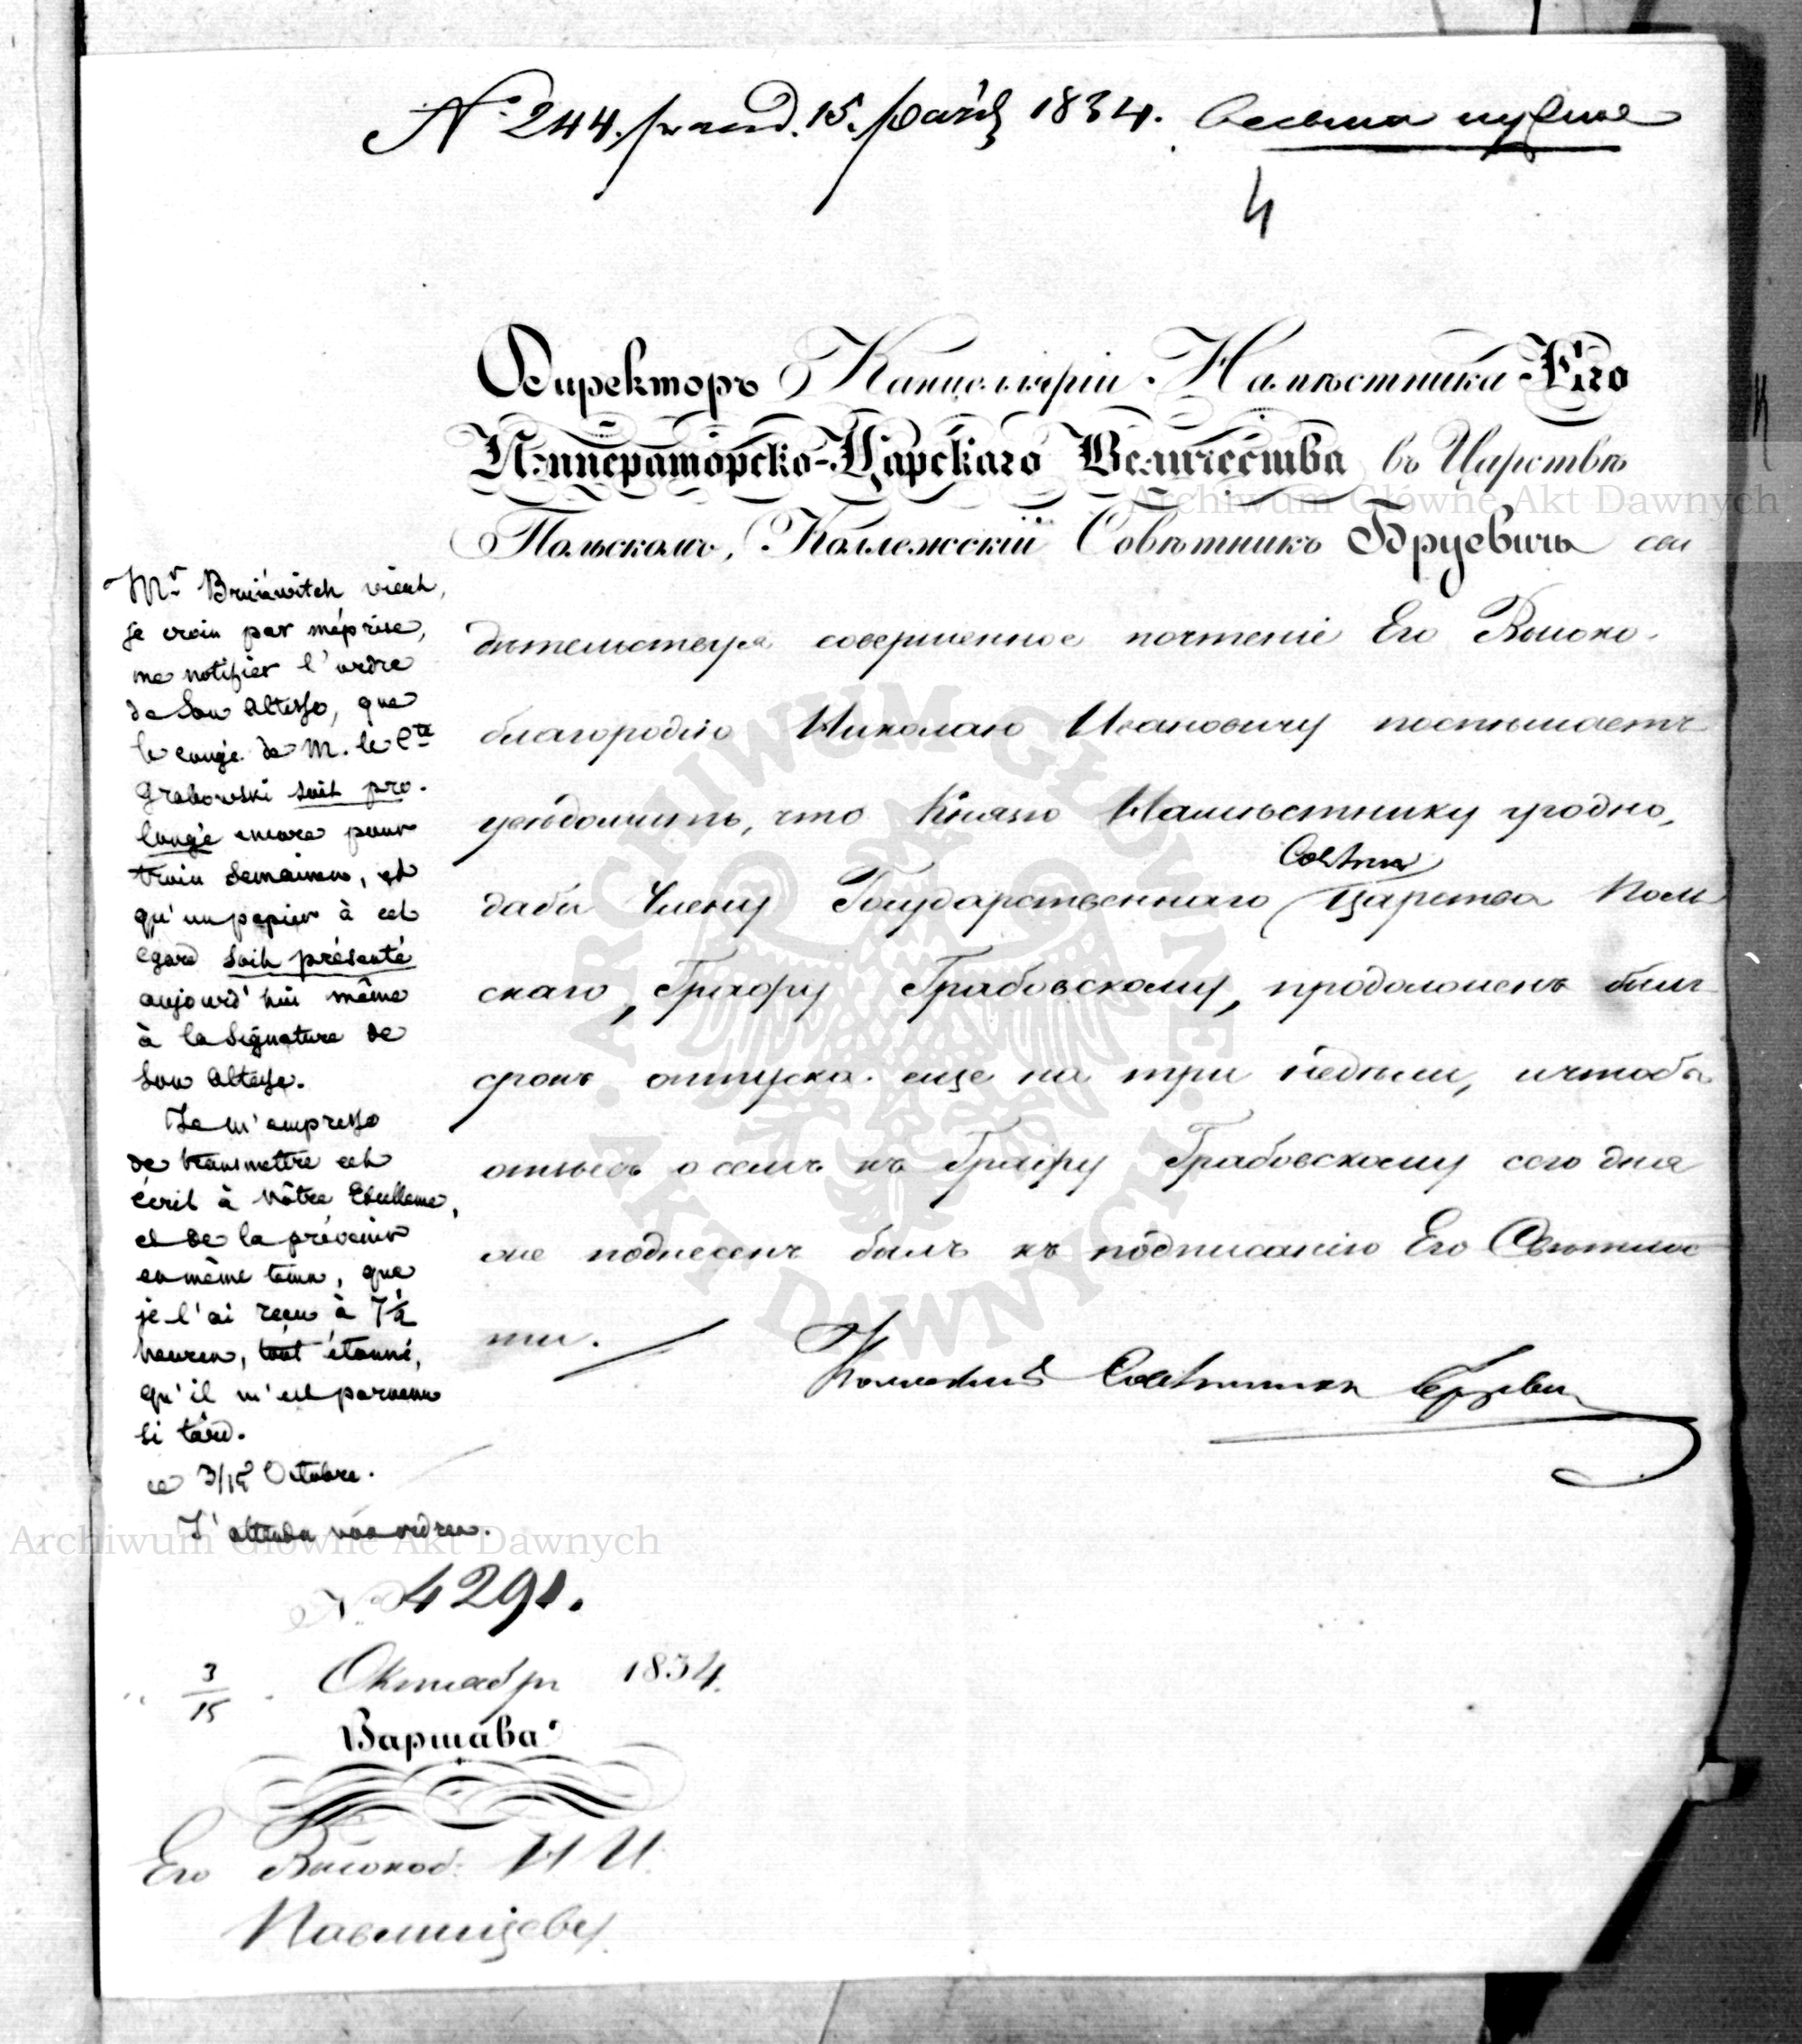 № 244. praes. d. 15. Paźd. 1834. весьма нужное
4
Директоръ Канцеляріи Намѣстника Его
Императорско-Царскаго Величества въ Царствѣ
Польскомъ, Коллежскій Совѣтникъ Бруевичъ сви
дѣтельствуя совершенное почтеніе Его Высоко-
благородію Николаю Ивановичу поспѣшаетъ
увѣдомить, что Князю Намѣстнику угодно,
Совѣта
дабы Члену Государственнаго Царства Поль
скаго, Графу Грабовскому, продолженъ былъ
срокъ отпуска еще на три недѣли, и чтобъ
отзывъ о семъ къ Графу Грабовскому сего дня
же поднесенъ былъ къ подписанію Его Свѣтлос
ти.
Коллежскій Совѣтникъ Бруевич
Mr Bruiéwitch vient,
je crois par méprise,
me notifier l'ordre
de Son Altesse, que
le congé de M. le Cte
Grabowski soit pro-
longé encore pour
trois semaines, et
qu'un papier à cet
égard soit présenté
aujourd'hui même
à la Signature de
Son Altesse.
Je m'empresse
de transmettre cet
écrit à Vôtre Excellence,
et de la prévenir
en même tems, que
je l'ai reçu à 7½
heures, tout étonné,
qu'il m'est parvenu
si tard.
ce 3/15 Octobre.
J'attends vos ordres.
№ 4291.
3/15 Октября 1834.
Варшава
Его Высокоб: Н И.
Павлищеву.
Archiwum Główne Akt Dawnych
Archiwum Główne Akt Dawnych
ARCHIWUM GŁÓWNE AKT DAWNYCH